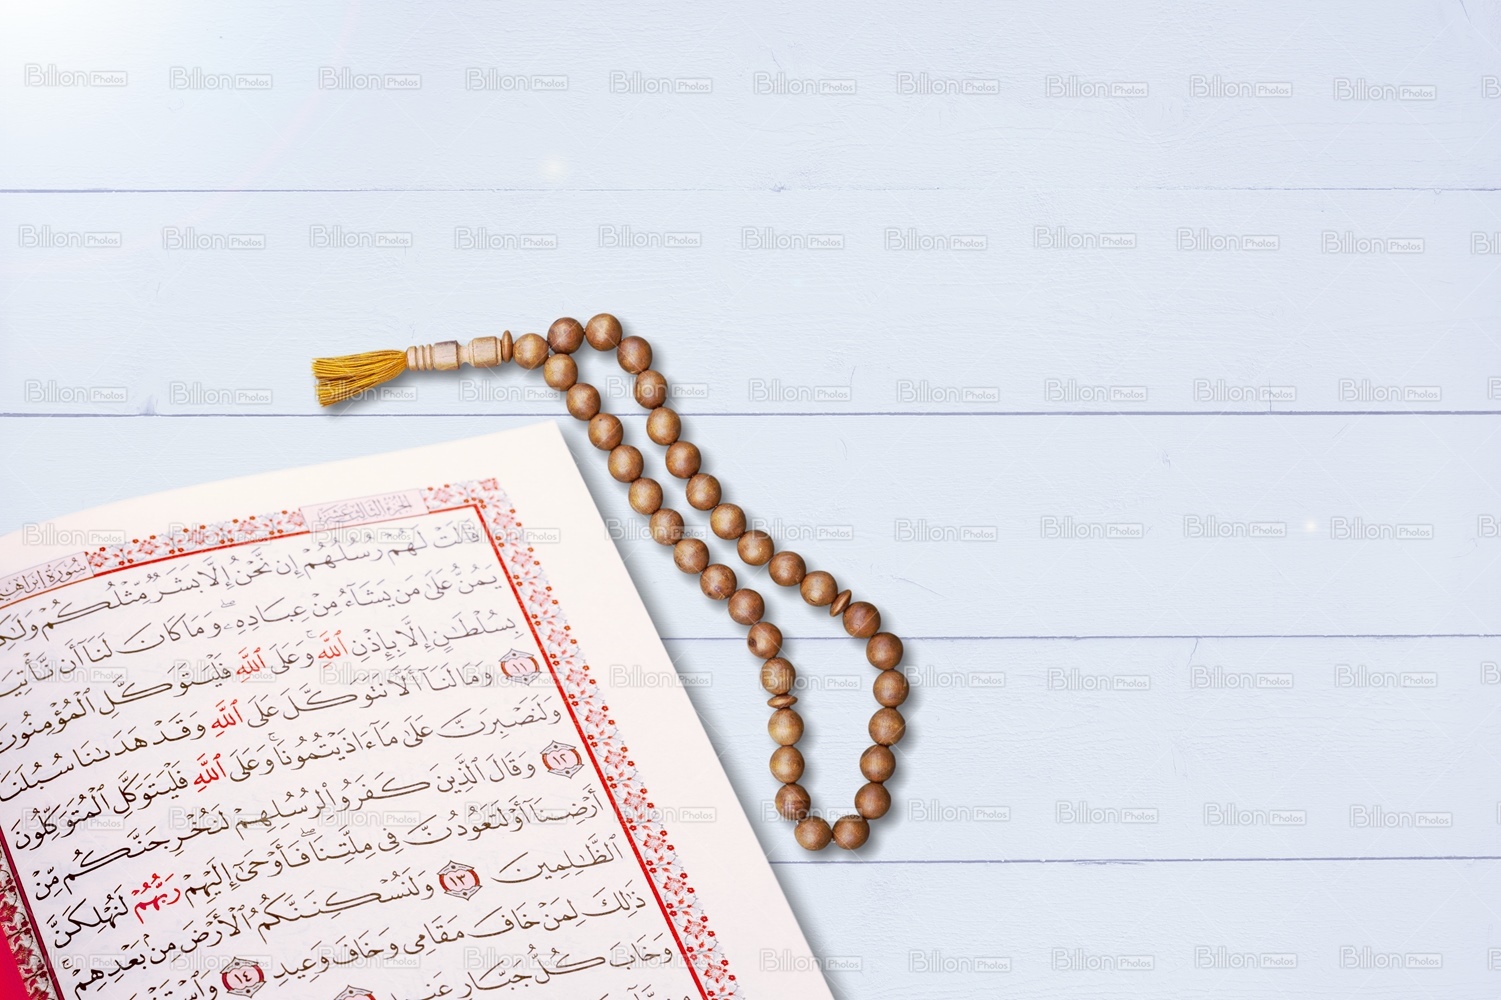 الجزء الثالث عشر
سورة إبراهيم
قَالَتْ لَهُمْ رُسُلُهُمْ إِن نَّحْنُ إِلَّا بَشَرٌ مِّثْلُكُمْ وَلَٰكِ
يَمُنُّ عَلَىٰ مَن يَشَآءُ مِنْ عِبَادِهِۦ ۖ وَمَا كَانَ لَنَآ أَن نَّأْتِيَ
بِسُلْطَٰنٍ إِلَّا بِإِذْنِ ٱللَّهِ ۚ وَعَلَى ٱللَّهِ فَلْيَتَوَكَّلِ ٱلْمُؤْمِنُونَ
١١ وَمَا لَنَآ أَلَّا نَتَوَكَّلَ عَلَى ٱللَّهِ وَقَدْ هَدَىٰنَا سُبُلَنَا
وَلَنَصْبِرَنَّ عَلَىٰ مَآ ءَاذَيْتُمُونَا ۚ وَعَلَى ٱللَّهِ فَلْيَتَوَكَّلِ ٱلْمُتَوَكِّلُونَ
١٢ وَقَالَ ٱلَّذِينَ كَفَرُوا۟ لِرُسُلِهِمْ لَنُخْرِجَنَّكُم مِّنْ
أَرْضِنَآ أَوْ لَتَعُودُنَّ فِى مِلَّتِنَا ۖ فَأَوْحَىٰٓ إِلَيْهِمْ رَبُّهُمْ لَنُهْلِكَنَّ
ٱلظَّٰلِمِينَ ١٣ وَلَنُسْكِنَنَّكُمُ ٱلْأَرْضَ مِنۢ بَعْدِهِمْ ۚ
ذَٰلِكَ لِمَنْ خَافَ مَقَامِى وَخَافَ وَعِيدِ ١٤ وَٱسْتَفْ
وَخَابَ كُلُّ جَبَّارٍ عَنِيدٍ
Billion Photos